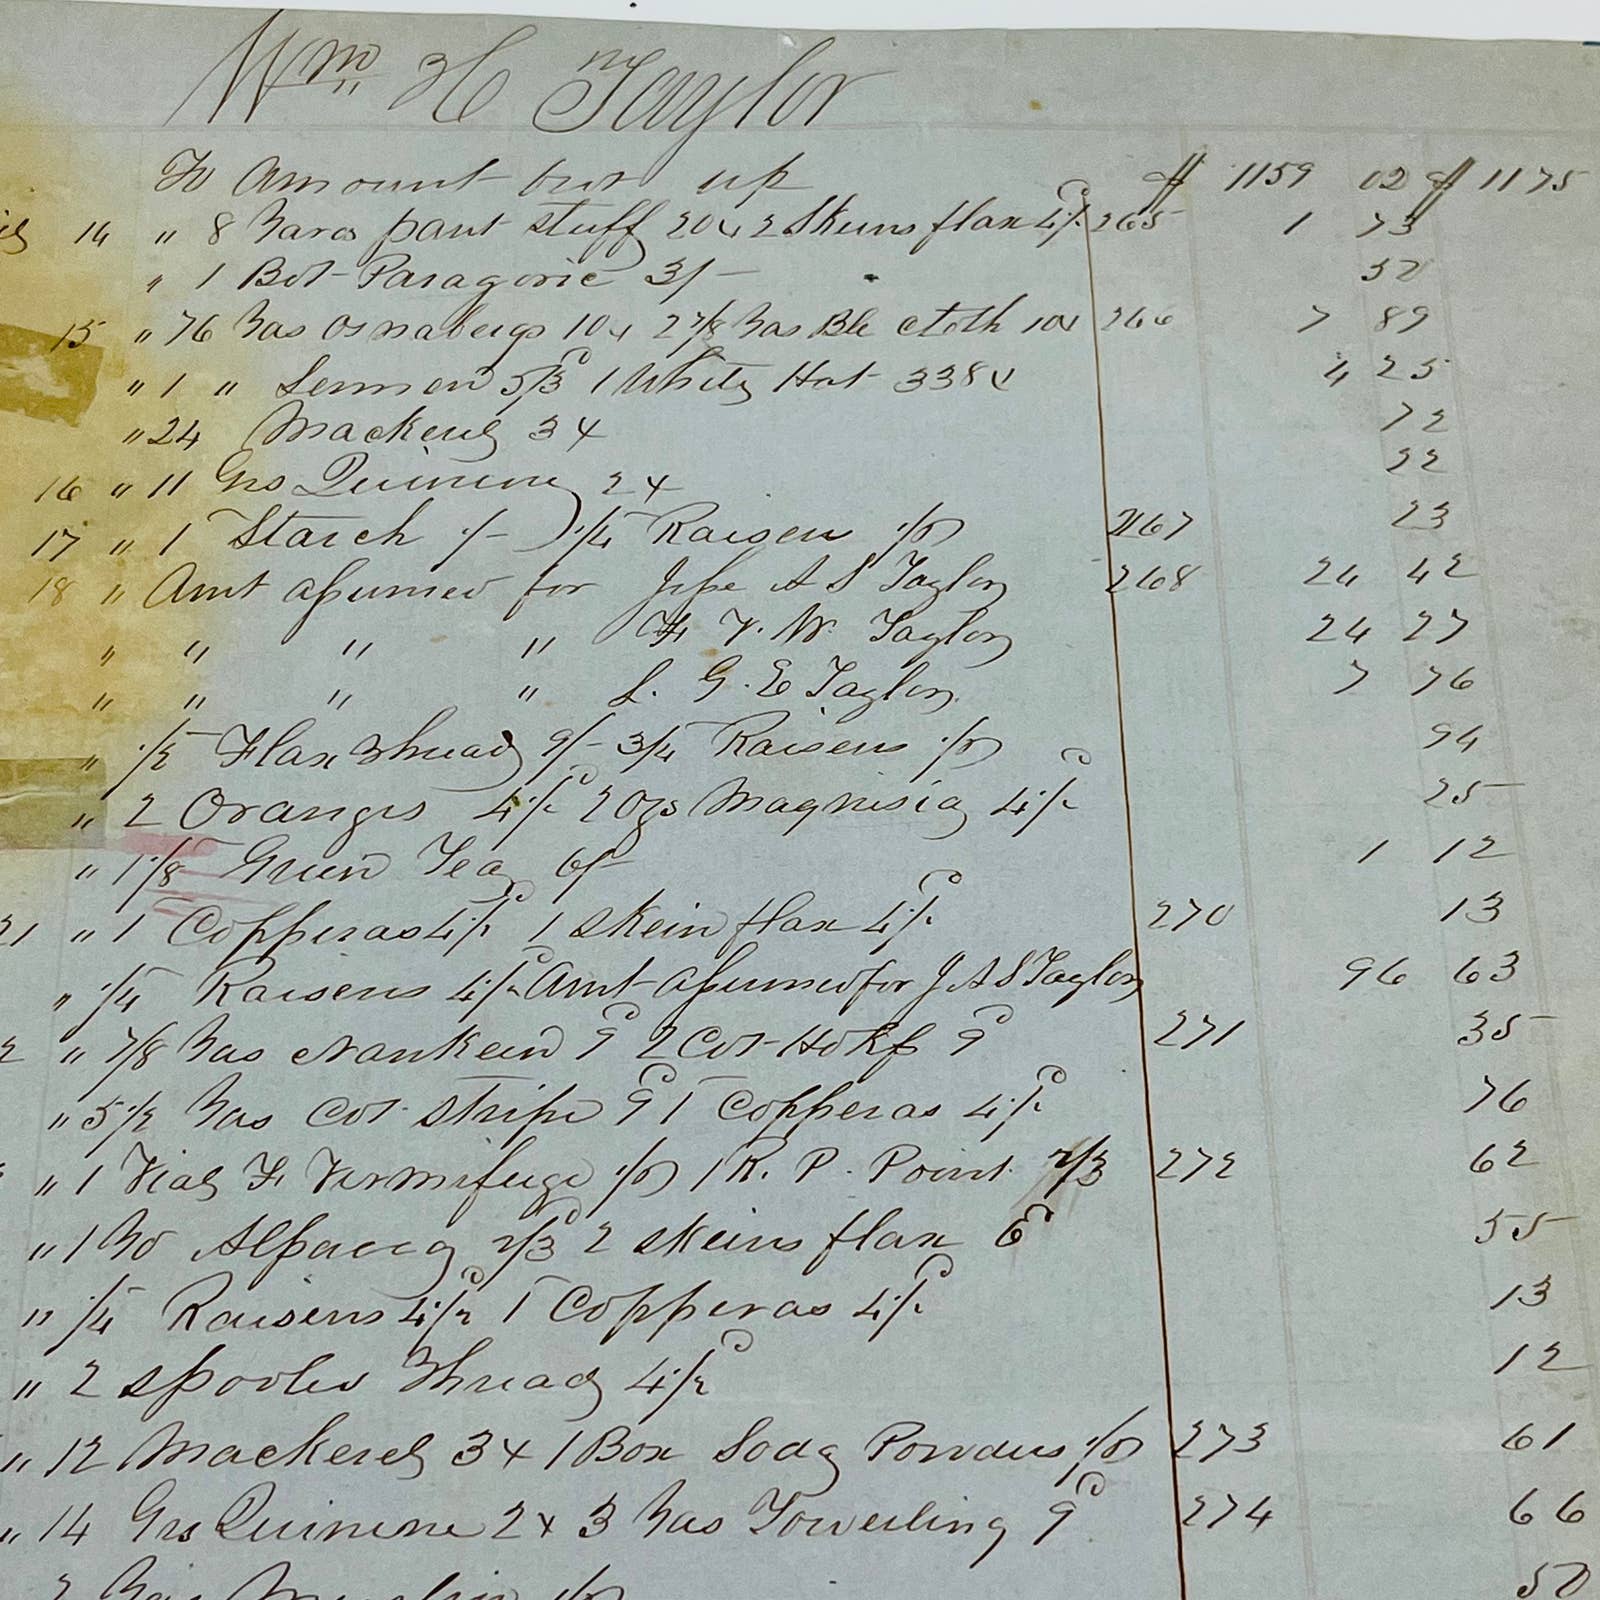 Wm H Taylor
To Amount brot up $ 1159 02 $ 1175
14 " 8 Yards pant stuff 20¢ 2 Skeins flax 4/. 265 1 73
" 1 Bot Paragoric 3/- 50
15 " 76 Yds Osnabergs 10¢ 2 7/8 Yds Ble Cloth 10¢ 266 7 89
" 1 " 1 White Hat 338¢ 4 25
" 24 Mackerel 3¢ 72
16 " 11 Grs Quinine 2¢ 22
17 " 1 Starch 1/- 1/4 Raisen 267 23
18 " Amt assumed for A S Taylor 268 24 42
" " " " F. W. Taylor 24 27
" " " " L. G. E Taylor 7 76
" 1/2 Flax Thread 9/- 3/4 Raisens 94
" 2 Oranges 4½ 2 Ozs Magnisia 4½ 25
" 1 1/8 Green Tea 6/- 1 12
21 " 1 Copperas 4½ 1 skein flax 4½ 270 13
" 1/4 Raisens 4½ Amt assumed for J A S Taylor 96 63
" 7/8 Yds Nankeen 9 2 Cot Hdkfs 9 271 35
" 5 1/2 Yds Cot stripe 9 1 Copperas 4½ 76
" 1 Vial F. Vermifuge 1 R. P. Point 2/3 272 62
" 1 Yd Alpacca 2/3 2 skeins flax 6 55
" 1/4 Raisens 4½ 1 Copperas 4½ 13
" 2 spooles Thread 4½ 12
" 12 Mackerel 3¢ 1 Box Soda Powders 273 61
" 14 Grs Quinine 2¢ 3 Yds Toweling 9 274 66
2 Yds Muslin 50